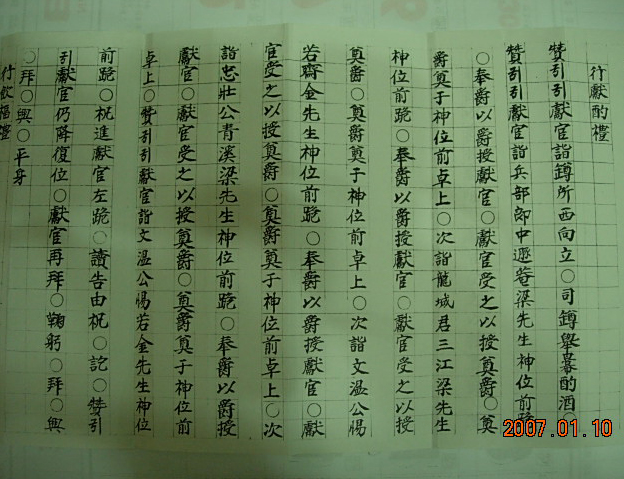 行獻酌禮
贊引引獻官詣罇所西向立○司罇擧冪酌酒○
贊引引獻官詣兵部郎中遯菴梁先生神位前跪
○奉爵以爵授獻官○獻官受之以授奠爵○奠
爵奠于神位前卓上○次詣龍城君三江梁先生
神位前跪○奉爵以爵授獻官○獻官受之以授
奠爵○奠爵奠于神位前卓上○次詣文溫公惕
若齋金先生神位前跪○奉爵以爵授獻官○獻
官受之以授奠爵○奠爵奠于神位前卓上○次
詣忠壯公靑溪梁先生神位前跪○奉爵以爵授
獻官○獻官受之以授奠爵○奠爵奠于神位前
卓上○贊引引獻官詣文溫公惕若金先生神位
前跪○祝進獻官左跪○讀告由祝○訖○贊引
引獻官仍降復位○獻官再拜○鞠躬○拜○興
○拜○興○平身
行飮福禮
2007.01.10